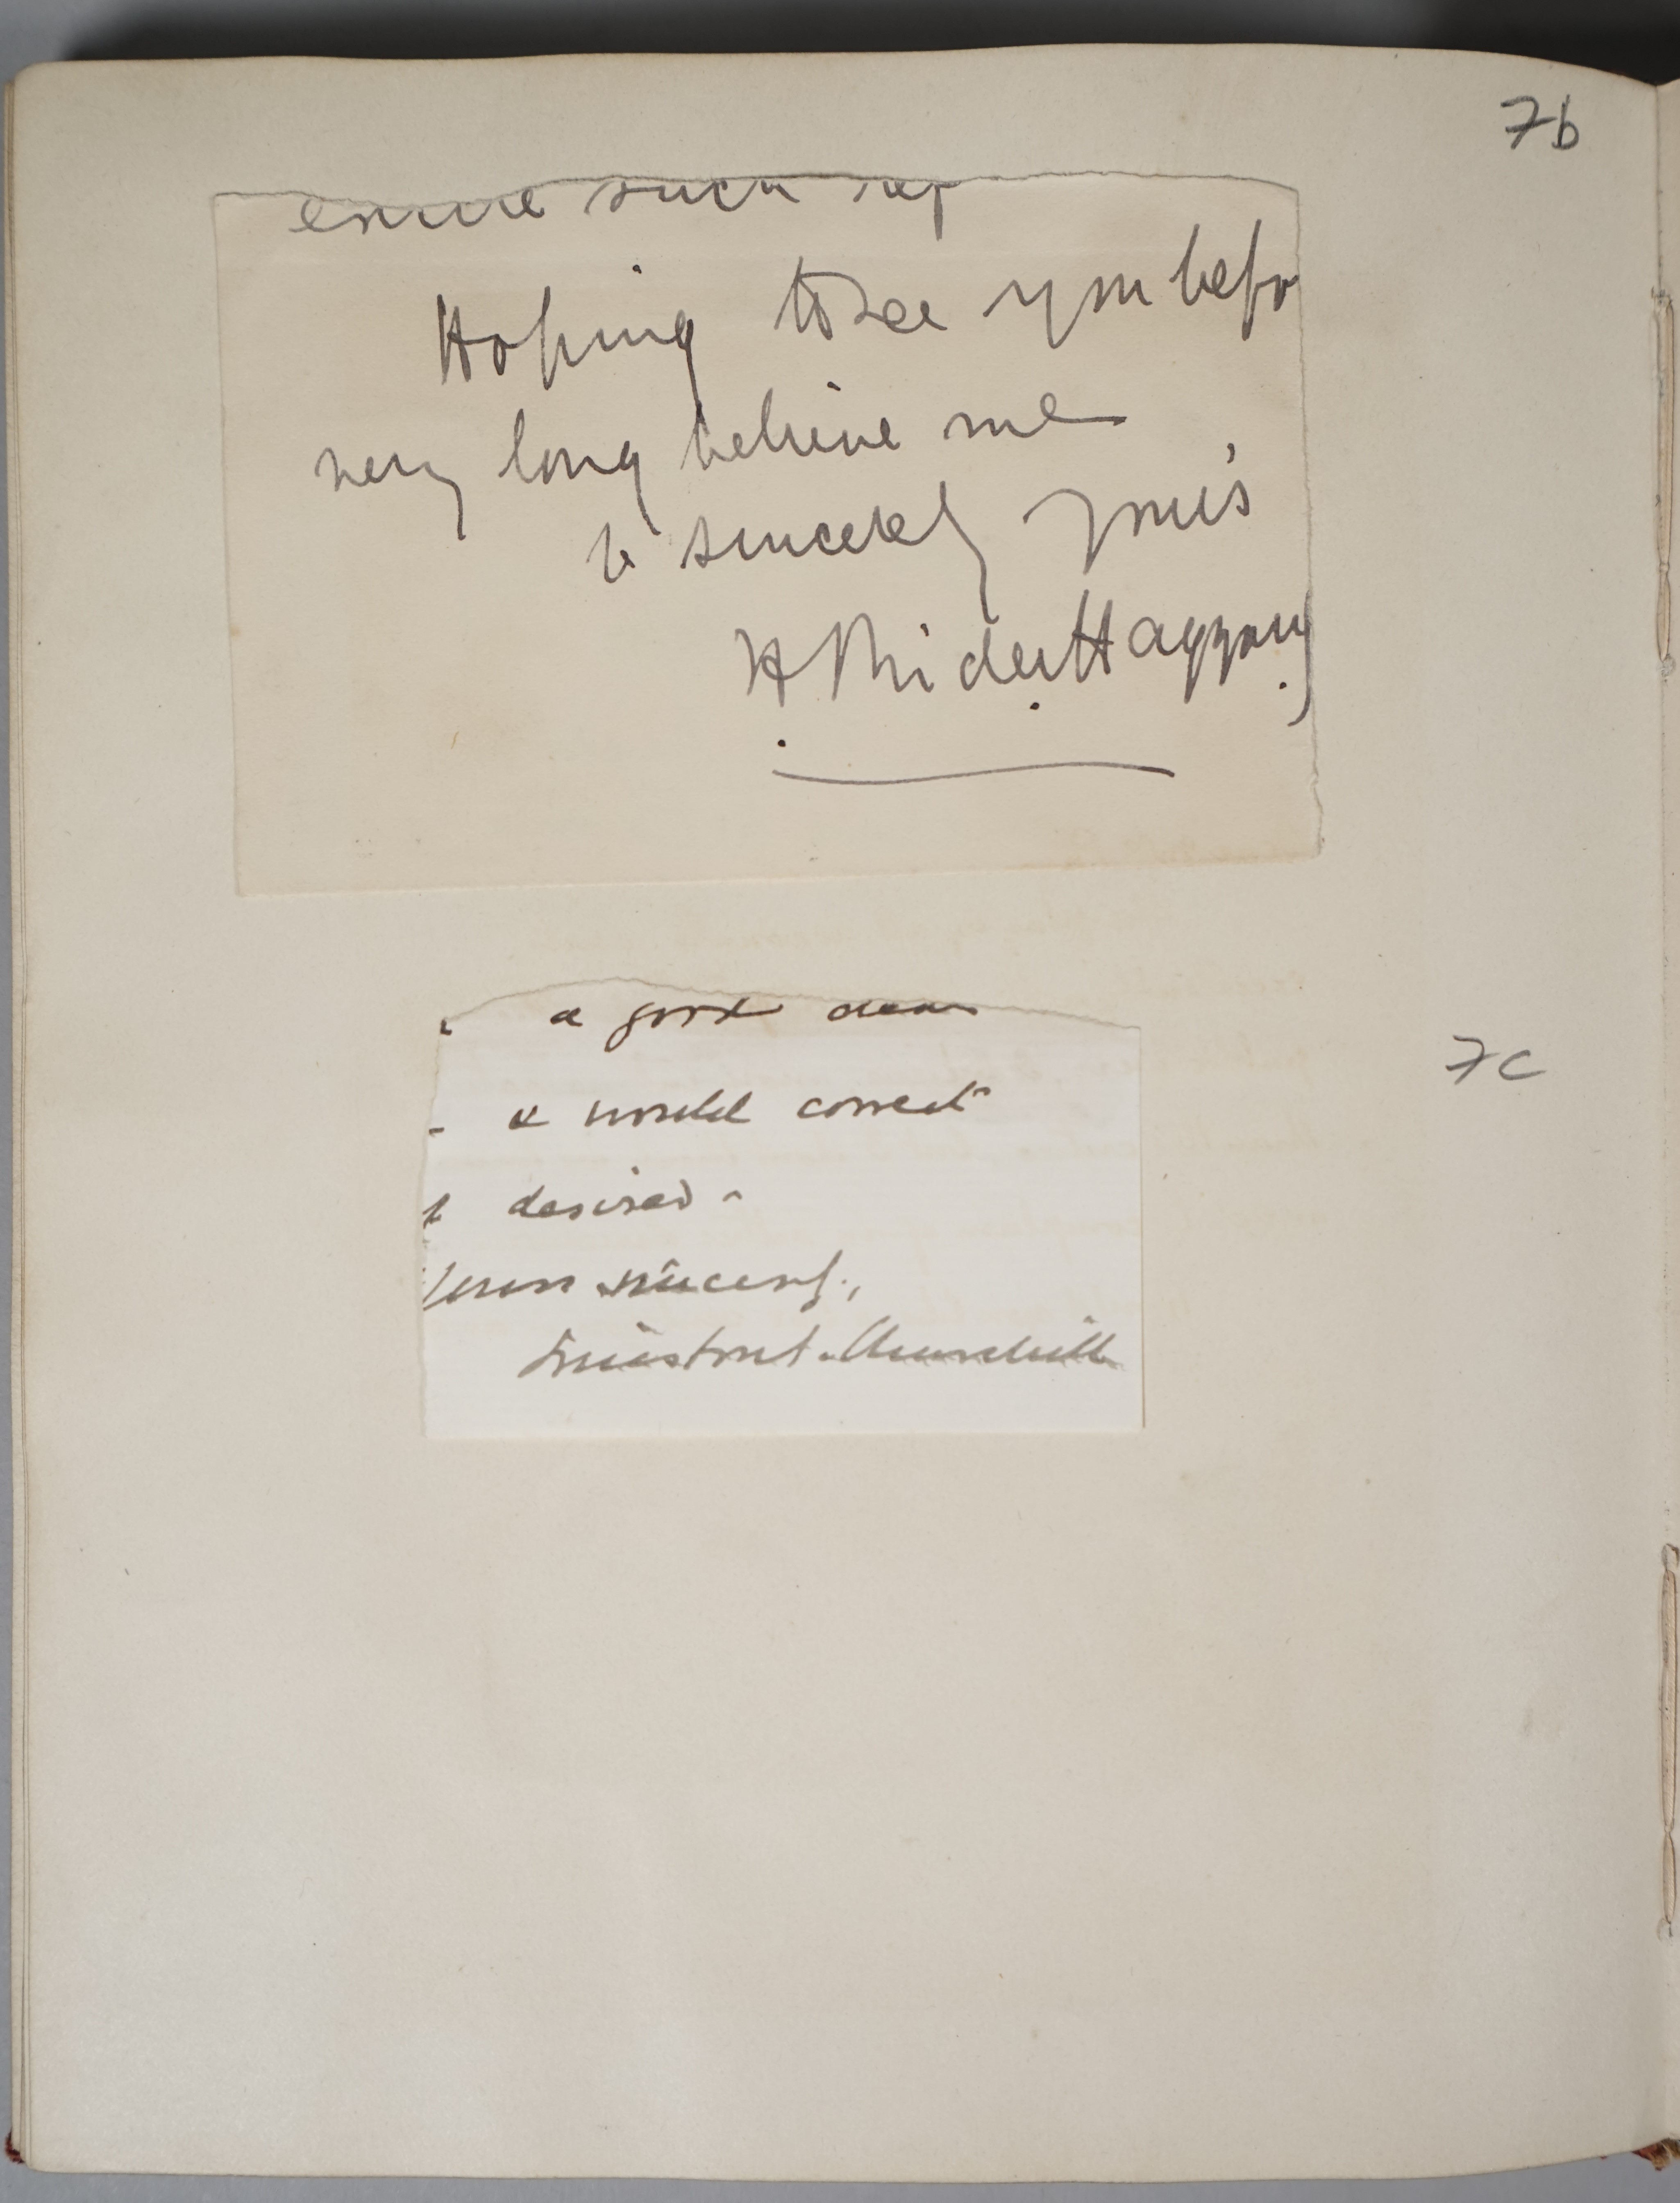 7b
such
Hoping to see you befo
very long believe me
sincerely yours
H. Rider Haggard
7c
a good deal
& would correct
desired -
Yours sincerely,
Winston S. Churchill